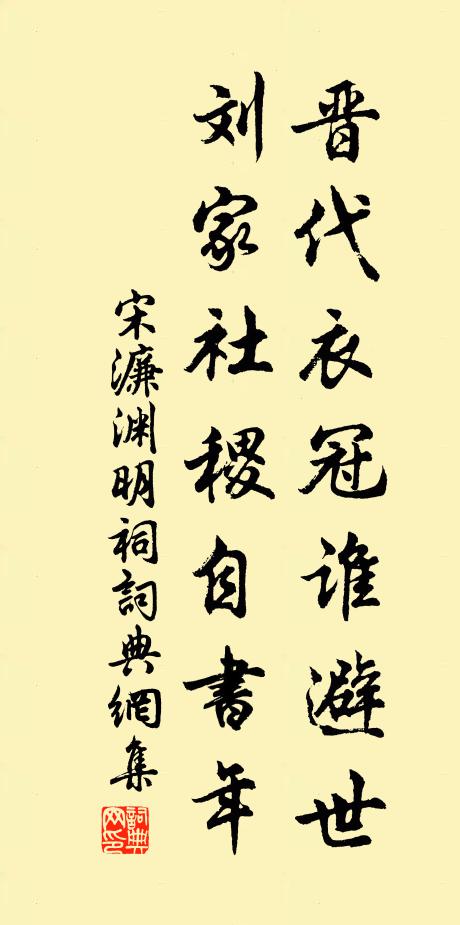 晋代衣冠谁避世
刘家社稷自書年
宋濂渊明祠詞典網集
詞典网印